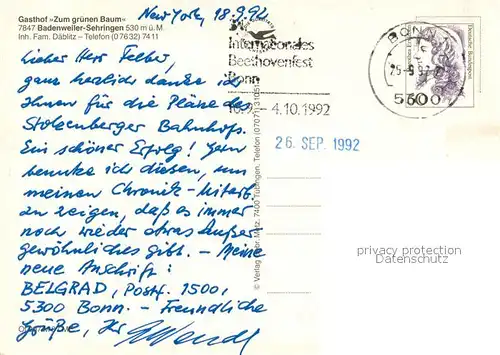 Gasthof »Zum grünen Baum«
7847 Badenweiler-Sehringen 530 m ü. M.
Inh. Fam. Däblitz – Telefon (0 76 32) 7411
New York, 18.9.92
Lieber Herr Felber,
ganz herzlich danke ich
Ihnen für die Pläne des
Stolzenberger Bahnhofs.
Ein schöner Erfolg! Gern
benutze ich diesen, um
meinen Chronik-Mitarb.
zu zeigen, daß es immer
noch wieder etwas Außer-
gewöhnliches gibt. – Meine
neue Anschrift:
BELGRAD, Postf. 1500,
5300 Bonn. – Freundliche
Grüße, Ihr
Internationales
Beethovenfest
Bonn
– 4.10.1992
BONN
5300
Deutsche Bundespost
26. SEP. 1992
© Verlag Metz, 7400 Tübingen, Telefon (07071)
privacy protection